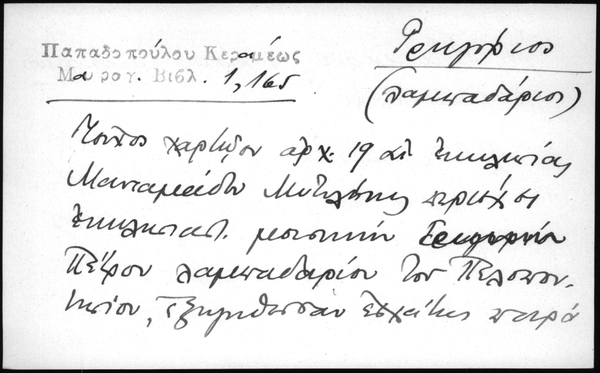 Παπαδοπούλου Κεραμέως
Μαυρογ. Βιβλ. 1, 165
Γρηγόριος
(λαμπαδάριος)
χαρτῷον ἀρχ. 19 αἰ. ἐκκλησίας
Μανταμάδου Μυτιλήνης περιέχει
ἐκκλησιαστ. μουσικὴν
Πέτρου λαμπαδαρίου τοῦ Πελοπον-
νησίου, ἐξηγηθεῖσαν ἐσχάτως παρὰ